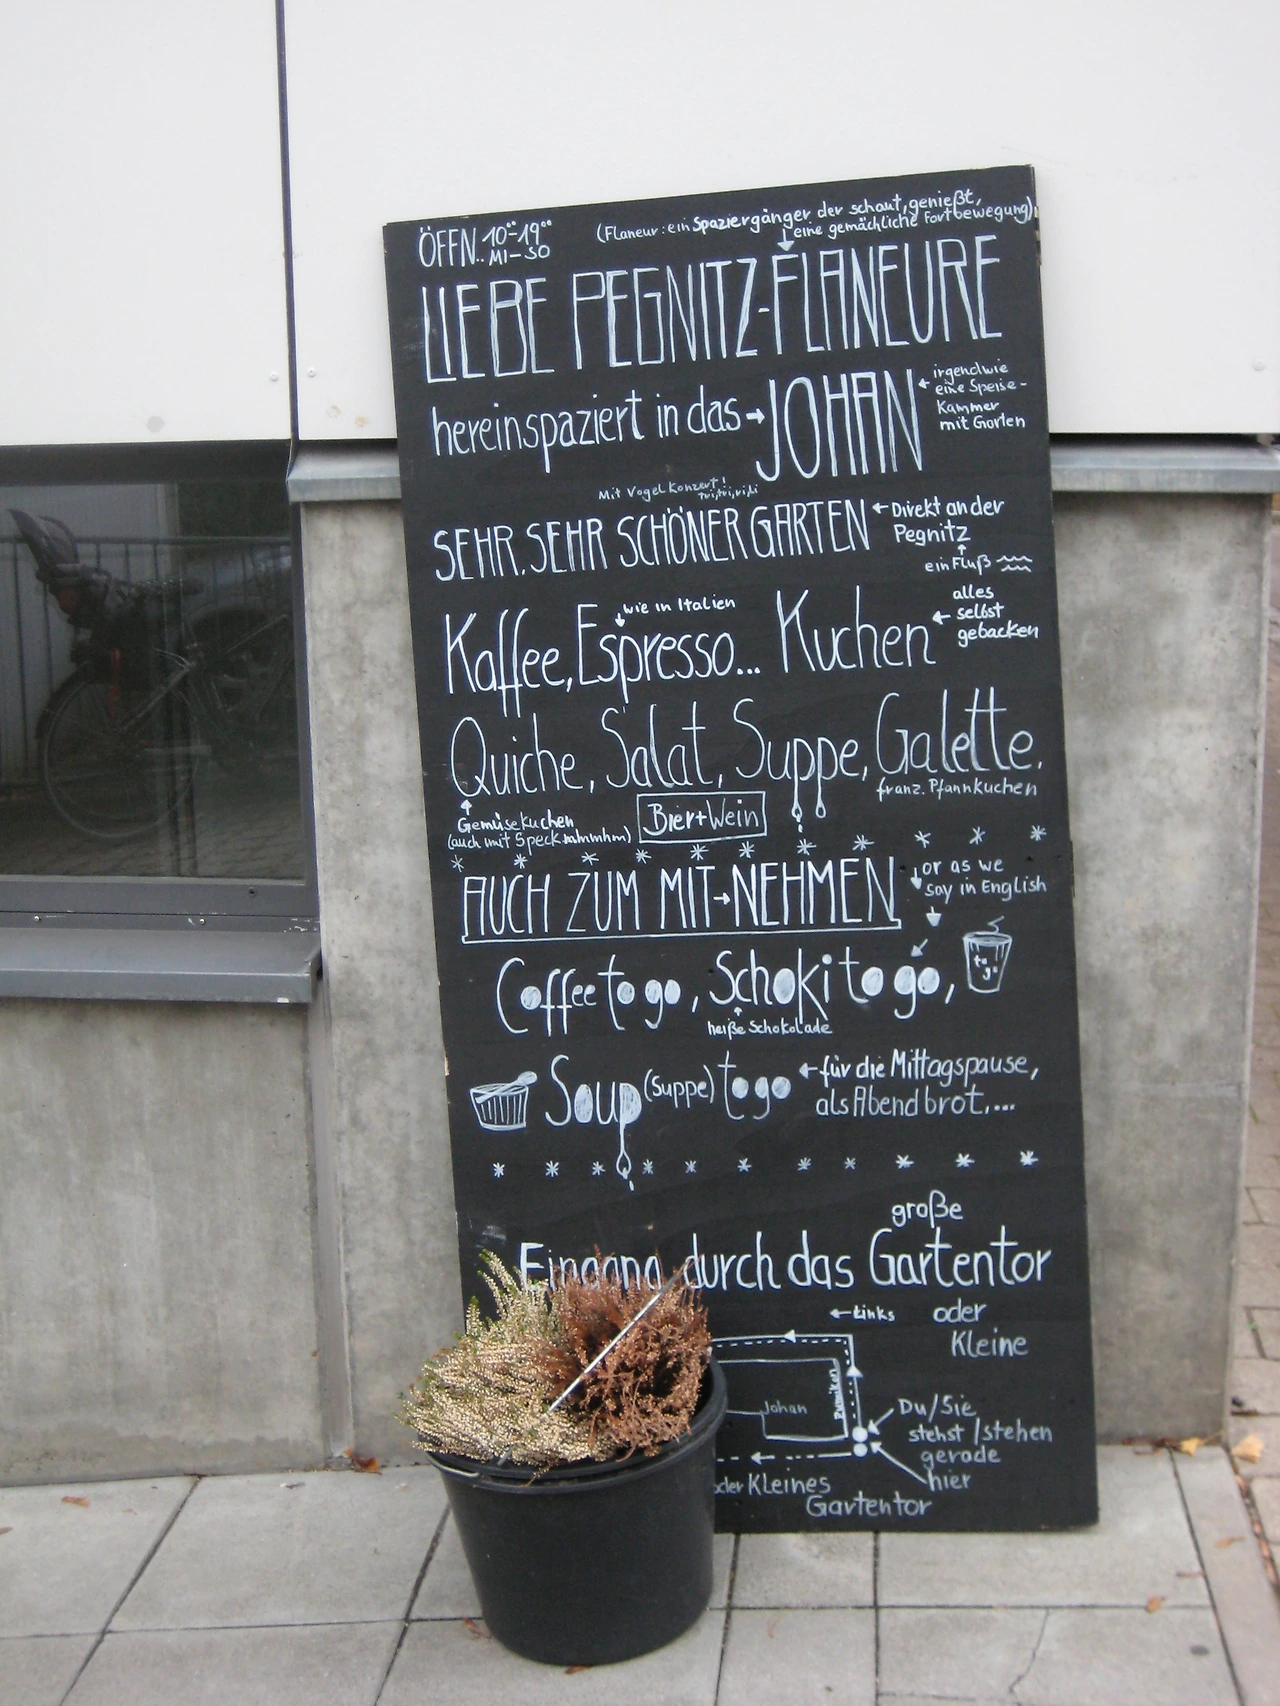 ÖFFN.. 10⁰⁰-19⁰⁰
MI-SO
(Flaneur: ein Spaziergänger der schaut, genießt,
eine gemächliche Fortbewegung)
LIEBE PEGNITZ-FLANEURE
hereinspaziert in das → JOHAN
← irgendwie
eine Speise-
Kammer
mit Garten
Mit Vogel Konzert!
SEHR, SEHR SCHÖNER GARTEN
← Direkt an der
Pegnitz
ein Fluß
wie in Italien
Kaffee, Espresso... Kuchen
← alles
selbst
gebacken
Quiche, Salat, Suppe, Galette,
franz. Pfannkuchen
Gemüsekuchen
(auch mit Speck mmmhm)
Bier+Wein
AUCH ZUM MIT→NEHMEN
or as we
say in English
Coffee to go, Schoki to go,
to go
heiße Schokolade
Soup (Suppe) to go
← für die Mittagspause,
als Abendbrot,...
große
Eingang durch das Gartentor
← Links
oder
Kleine
Johan
Du/Sie
stehst/stehen
gerade
hier
oder Kleines
Gartentor